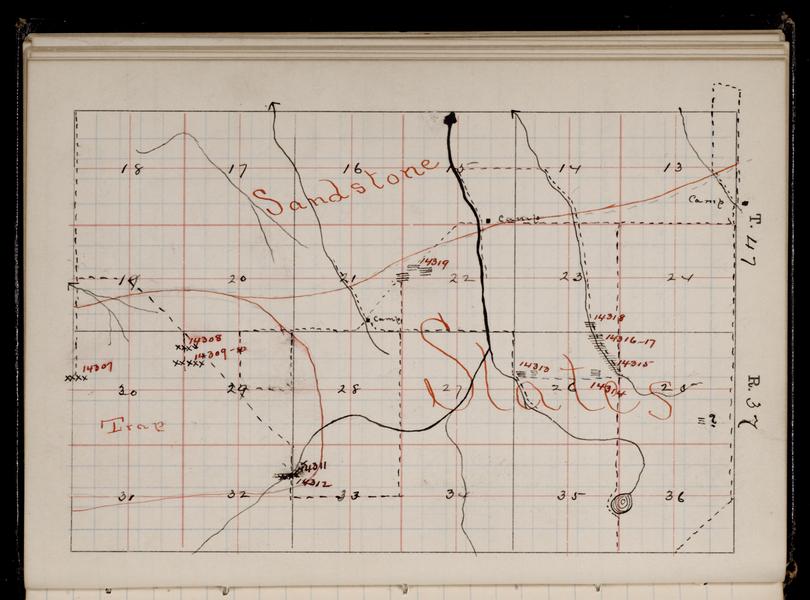 18 17 16 15 14 13
Sandstone
Camp
Camp
T. 47
19 20 21 22 23 24
14319
Camp
14318
14316-17
14315
14308
14309-10
14307
14313
14314
30 29 28 27 26 25
Slates
R. 37
Trap
?
14311
14312
31 32 33 34 35 36